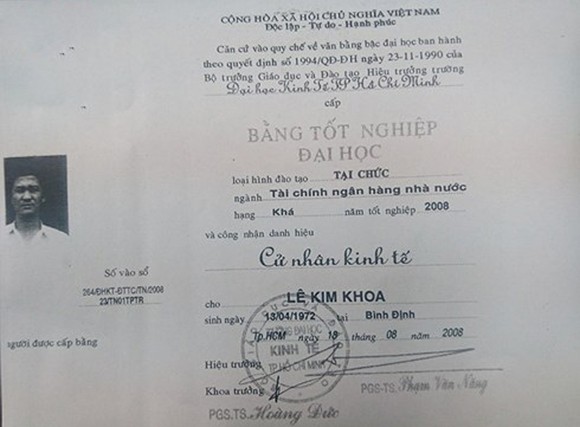 CỘNG HÒA XÃ HỘI CHỦ NGHĨA VIỆT NAM
Độc lập - Tự do - Hạnh phúc
Căn cứ vào quy chế về văn bằng bậc đại học ban hành
theo quyết định số 1994/QĐ-ĐH ngày 23-11-1990 của
Bộ trưởng Giáo dục và Đào tạo Hiệu trưởng trường
Đại học Kinh Tế TP Hồ Chí Minh
cấp
BẰNG TỐT NGHIỆP
ĐẠI HỌC
loại hình đào tạo TẠI CHỨC
ngành Tài chính ngân hàng nhà nước
hạng Khá năm tốt nghiệp 2008
và công nhận danh hiệu
Cử nhân kinh tế
Số vào sổ
264/ĐHKT-ĐTTC/TN/2008
23/TN01TPTR
cho LÊ KIM KHOA
sinh ngày 13/04/1972 tại Bình Định
Tp.HCM ngày 18 tháng 08 năm 2008
người được cấp bằng
Hiệu trưởng
KINH TẾ
TP.HỒ CHÍ MINH
Khoa trưởng
PGS-TS. Phạm Văn Năng
PGS.TS. Hoàng Đức